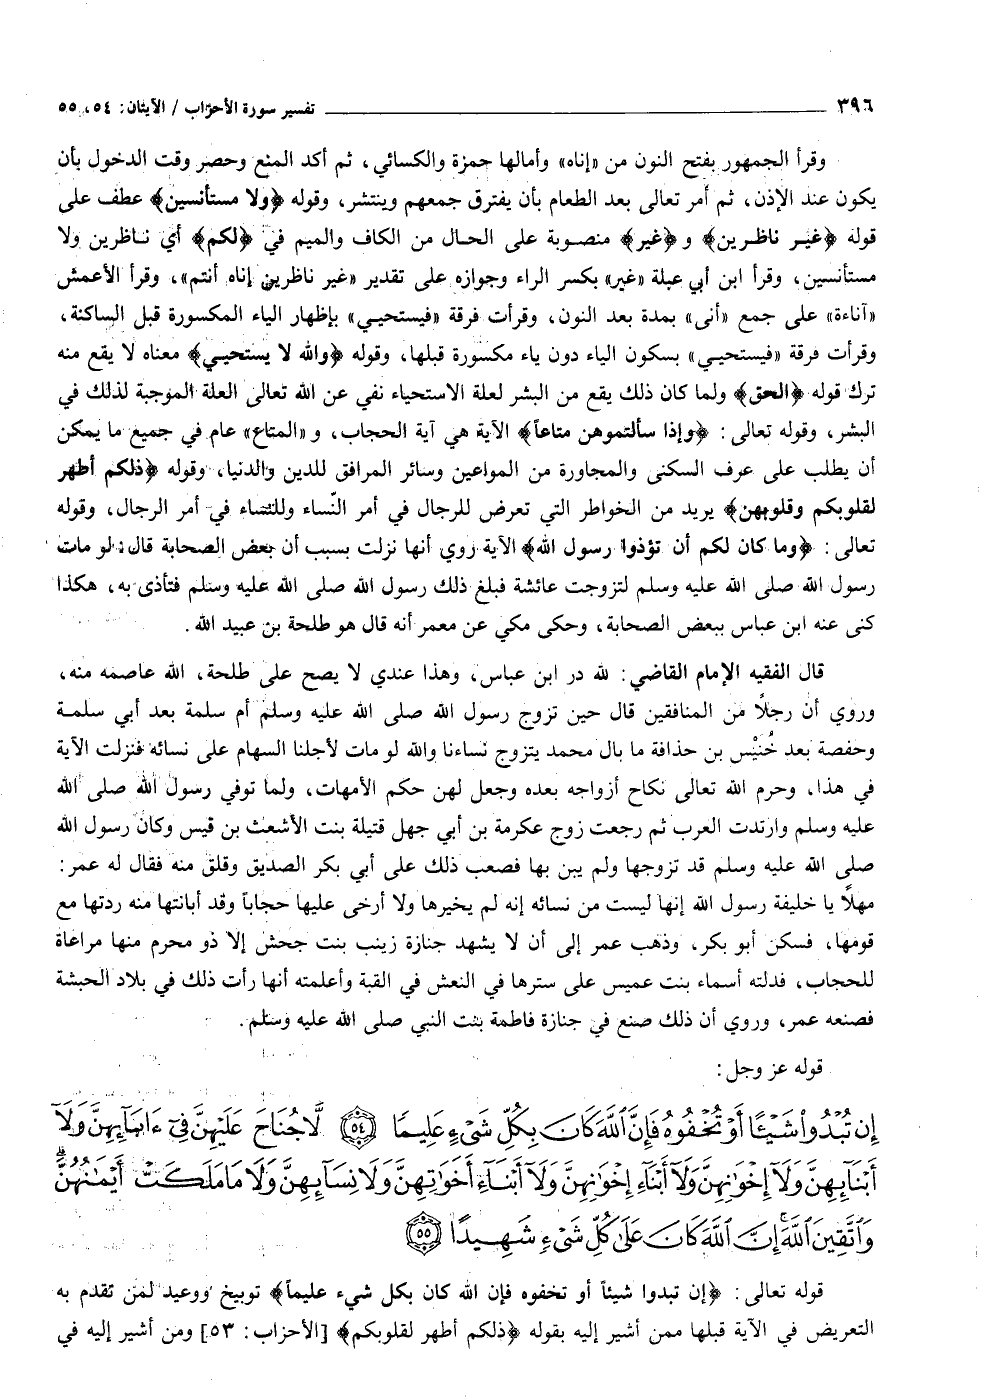 ٣٩٦ تفسير سورة الأحزاب / الآيتان: ٥٤، ٥٥
وقرأ الجمهور بفتح النون من «إناه» وأمالها حمزة والكسائي، ثم أكد المنع وحصر وقت الدخول بأن
يكون عند الإذن، ثم أمر تعالى بعد الطعام بأن يفترق جمعهم وينتشر، وقوله ﴿ولا مستأنسين﴾ عطف على
قوله ﴿غير ناظرين﴾ و﴿غير﴾ منصوبة على الحال من الكاف والميم في ﴿لكم﴾ أي ناظرين ولا
مستأنسين، وقرأ ابن أبي عبلة «غير» بكسر الراء وجوازه على تقدير «غير ناظرين إناه أنتم»، وقرأ الأعمش
«آناءة» على جمع «أنى» بمدة بعد النون، وقرأت فرقة «فيستحيي» بإظهار الياء المكسورة قبل الساكنة،
وقرأت فرقة «فيستحيي» بسكون الياء دون ياء مكسورة قبلها، وقوله ﴿والله لا يستحيي﴾ معناه لا يقع منه
ترك قوله ﴿الحق﴾ ولما كان ذلك يقع من البشر لعلة الاستحياء نفي عن الله تعالى العلة الموجبة لذلك في
البشر، وقوله تعالى: ﴿وإذا سألتموهن متاعاً﴾ الآية هي آية الحجاب، و«المتاع» عام في جميع ما يمكن
أن يطلب على عرف السكنى والمجاورة من المواعين وسائر المرافق للدين والدنيا، وقوله ﴿ذلكم أطهر
لقلوبكم وقلوبهن﴾ يريد من الخواطر التي تعرض للرجال في أمر النساء وللنساء في أمر الرجال، وقوله
تعالى: ﴿وما كان لكم أن تؤذوا رسول الله﴾ الآية روي أنها نزلت بسبب أن بعض الصحابة قال: لو مات
رسول الله صلى الله عليه وسلم لتزوجت عائشة فبلغ ذلك رسول الله صلى الله عليه وسلم فتأذى به، هكذا
كنى عنه ابن عباس ببعض الصحابة، وحكى مكي عن معمر أنه قال هو طلحة بن عبيد الله.
قال الفقيه الإمام القاضي: لله در ابن عباس، وهذا عندي لا يصح على طلحة، الله عاصمه منه،
وروي أن رجلاً من المنافقين قال حين تزوج رسول الله صلى الله عليه وسلم أم سلمة بعد أبي سلمة
وحفصة بعد خُنَيْس بن حذافة ما بال محمد يتزوج نساءنا والله لو مات لأجلنا السهام على نسائه فنزلت الآية
في هذا، وحرم الله تعالى نكاح أزواجه بعده وجعل لهن حكم الأمهات، ولما توفي رسول الله صلى الله
عليه وسلم وارتدت العرب ثم رجعت زوج عكرمة بن أبي جهل قتيلة بنت الأشعث بن قيس وكان رسول الله
صلى الله عليه وسلم قد تزوجها ولم يبن بها فصعب ذلك على أبي بكر الصديق وقلق منه فقال له عمر:
مهلاً يا خليفة رسول الله إنها ليست من نسائه إنه لم يخيرها ولا أرخى عليها حجاباً وقد أبانتها منه ردتها مع
قومها، فسكن أبو بكر، وذهب عمر إلى أن لا يشهد جنازة زينب بنت جحش إلا ذو محرم منها مراعاة
للحجاب، فدلته أسماء بنت عميس على سترها في النعش في القبة وأعلمته أنها رأت ذلك في بلاد الحبشة
فصنعه عمر، وروي أن ذلك صنع في جنازة فاطمة بنت النبي صلى الله عليه وسلم.
قوله عز وجل:
إِن تُبْدُوا۟ شَيْـًٔا أَوْ تُخْفُوهُ فَإِنَّ ٱللَّهَ كَانَ بِكُلِّ شَىْءٍ عَلِيمًا ﴿٥٤﴾ لَّا جُنَاحَ عَلَيْهِنَّ فِىٓ ءَابَآئِهِنَّ وَلَآ
أَبْنَآئِهِنَّ وَلَآ إِخْوَٰنِهِنَّ وَلَآ أَبْنَآءِ إِخْوَٰنِهِنَّ وَلَآ أَبْنَآءِ أَخَوَٰتِهِنَّ وَلَا نِسَآئِهِنَّ وَلَا مَا مَلَكَتْ أَيْمَٰنُهُنَّ ۗ
وَٱتَّقِينَ ٱللَّهَ ۚ إِنَّ ٱللَّهَ كَانَ عَلَىٰ كُلِّ شَىْءٍ شَهِيدًا ﴿٥٥﴾
قوله تعالى: ﴿إن تبدوا شيئاً أو تخفوه فإن الله كان بكل شيء عليماً﴾ توبيخ ووعيد لمن تقدم به
التعريض في الآية قبلها ممن أشير إليه بقوله ﴿ذلكم أطهر لقلوبكم﴾ [الأحزاب: ٥٣] ومن أشير إليه في